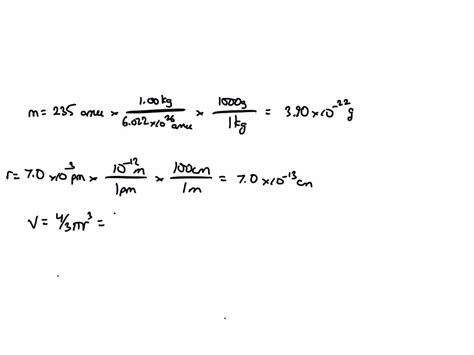 m = 235 amu × 1.00kg / 6.022×10^26 amu × 1000g / 1kg = 3.90×10^-22 g
r = 7.0 ×10^-3 pm × 10^-12 m / 1pm × 100cm / 1m = 7.0×10^-13 cm
V = 4/3πr^3 =